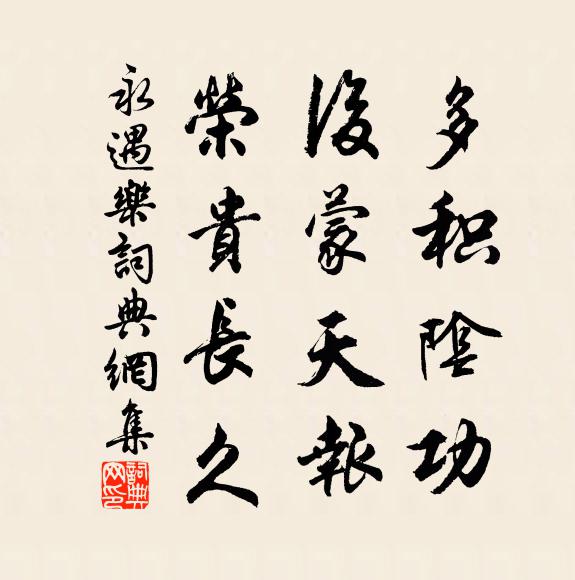 多积陰功
後蒙天報
榮貴長久
永遇樂詞典網集
詞典
网印